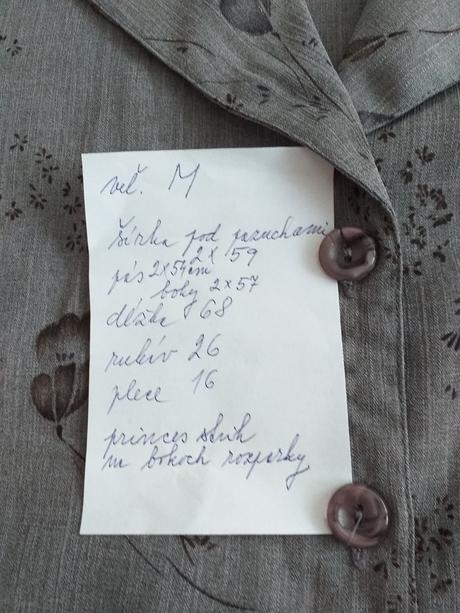 veľ. M
Šírka pod pazuchami
2 x 59
pás 2x54cm
boky 2x57
dĺžka 68
rukáv 26
plece 16
princes strih
na bokoch rozparky